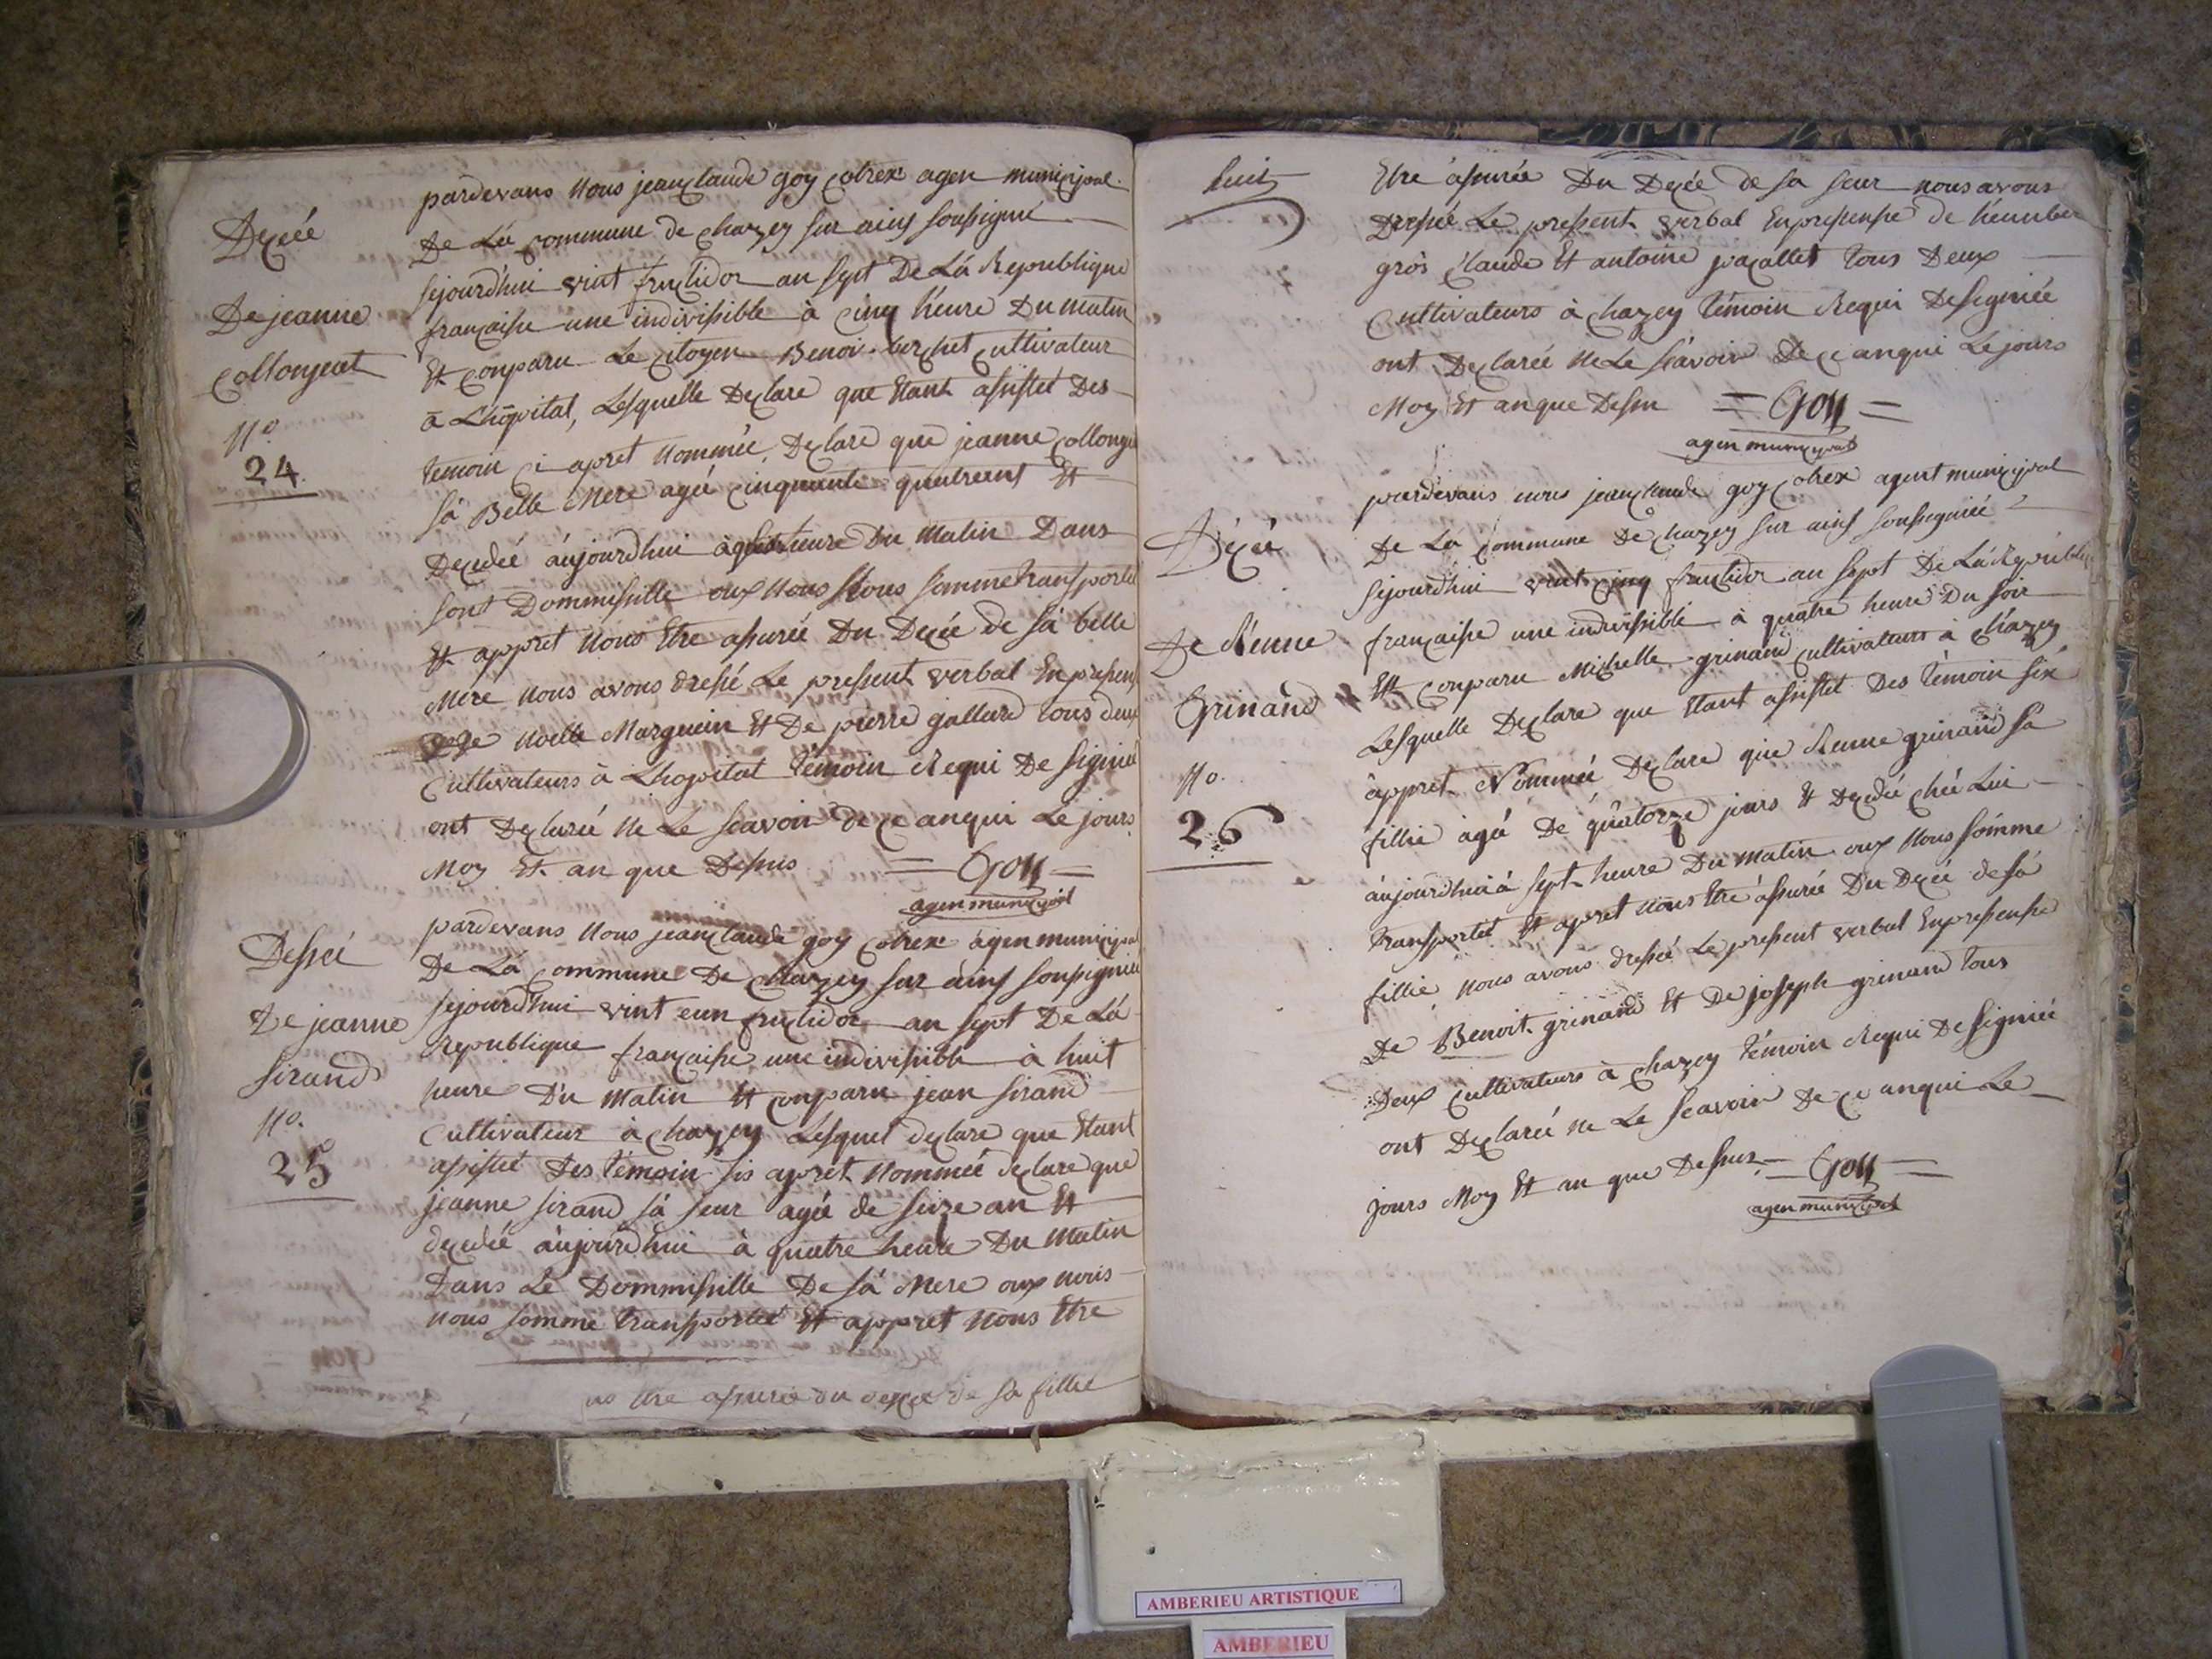 Decée
De jeanne
Collongeat
No
24
pardevans nous jeanclaude goy Cotrex agen municipal
De La Commune de chazey sur ains soussigné
sejourd'hui vint fructidor an sept De Lá Republique
française une indivisible à cinq heure Du matin
Et Conparu Le Citoyen Benoi berchet Cultivateur
à L'hôpital, Lesquelle Declare que Etant assistée Des
temoin ci apret Nommée, Declare que jeanne Collonge
sá Belle Mere ageé cinquante quatreent Et
Decedeé àujourdhui à heure Du Matin Dans
sont Dommisille oux Nous Nous somme transportée
Et appret Nous Etre assurée Du Decée de sá belle
Mere Nous avons dressé Le pressent verbal En pressen
De Noelle Marguin Et De pierre galland tous deux
Cultivateurs à Lhopital témoin Requi De signieé
ont Declareé Ne Le scavoir De ce anqui Le jours
Moy Et an que Dessus = Goy =
agen municipal
Desseé
De jeanne
sirand
No.
25
pardevans Nous jeanclaude goy Cotrex agen municipal
De Lá Commune De Chazey sur ains soussignieé
sejourd'hui vint eun fructidor an sept De Lá
Republique française une indivisible à huit
heure Du Matin Et Conparu jean sirand
Cultivateur à Chazey Lesquel declare que Etant
assisteé Des témoin sis apret Nommeé declare que
jeanne sirand sá seur ageé de seize an Et
decedeé àujourdhui à quatre heure Du Matin
Dans Le Dommisille De sá Mere oux nous
Nous somme transporteé Et appret Nous Etre
us Etre assurée du deceé de sa fillié
huit
Etre àssurée Du Deceé de sa seur nous avons
Dresseé Le pressent verbal En pressense de heumber
gros Claude Et antoine jacallet tous Deux
Cultivateurs à Chazey témoin Requi De signieé
ont Declareé Ne Le sçavoir De ce anqui Le jours
Moy Et an que Desu = Goy =
agen municipal
Déceé
De Renne
Grinand
No.
26
pardevans nous jeanclaude goy Cotrex agent municipal
De La Commune De Chazey sur ains soussignieé
sejourd'hui vint cinq fructidor an sept De Lá Republi
française une indivisible à quatre heure Du soir
Et Conparu Michelle grinand Cultivateurs à Chazey
Lesquelle Declare que Etant assisteé Des témoin six
àppret Nommeé Declare que Renne grinand sá
fillié àgeé De quàtorze jours Et Decedeé chée Lui
àujourdhui à sept heure Du Matin oux Nous somme
transporteé Et apret Nous Etre àssurée Du Deceé de sá
fillié Nous avons dresseé Le pressent verbal En pressense
De Benoit grinand Et De joseph grinand tous
Deux Cultivateurs à Chazey témoin Requi De signieé
ont Declareé Ne Le Scavoir De ce anqui Le
jours Moy Et an que Dessus = Goy =
agen municipal
AMBERIEU ARTISTIQUE
AMBERIEU